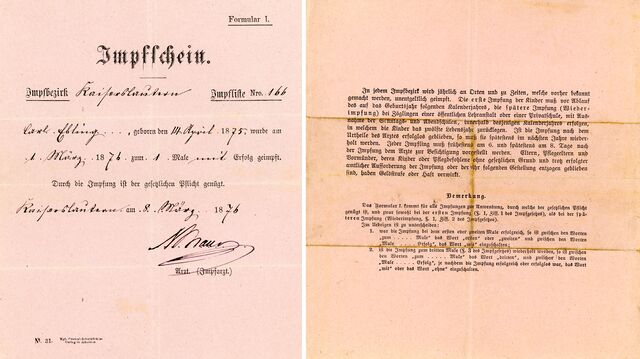 Formular I.
Impfschein.
Impfbezirk Kaiserslautern Impfliste Nro. 166
Carl Ebling . . ., geboren den 14 April 1875, wurde am
1. März 1876 zum 1 Male mit Erfolg geimpft.
Durch die Impfung ist der gesetzlichen Pflicht genügt.
Kaiserslautern am 8. März 1876
Arzt. (Impfarzt.)
Nº. 31.
In jedem Impfbezirk wird jährlich an Orten und zu Zeiten, welche vorher bekannt
gemacht werden, unentgeltlich geimpft. Die erste Impfung der Kinder muß vor Ablauf
des auf das Geburtsjahr folgenden Kalenderjahres, die spätere Impfung (Wieder-
impfung) bei Zöglingen einer öffentlichen Lehranstalt oder einer Privatschule, mit Aus-
nahme der Sonntags- und Abendschulen, innerhalb desjenigen Kalenderjahres erfolgen,
in welchem die Kinder das zwölfte Lebensjahr zurücklegen. Ist die Impfung nach dem
Urtheile des Arztes erfolglos geblieben, so muß sie spätestens im nächsten Jahre wieder-
holt werden. Jeder Impfling muß frühestens am 6. und spätestens am 8. Tage nach
der Impfung dem Arzte zur Besichtigung vorgestellt werden. Eltern, Pflegeeltern und
Vormünder, deren Kinder oder Pflegebefohlene ohne gesetzlichen Grund und trotz erfolgter
amtlicher Aufforderung der Impfung oder der ihr folgenden Gestellung entzogen geblieben
sind, haben Geldstrafe oder Haft verwirkt.
Bemerkung.
Das Formular I. kommt für alle Impfungen zur Anwendung, durch welche der gesetzlichen Pflicht
genügt ist, und zwar sowohl bei der ersten Impfung (§. 1, Ziff. 1 des Impfgesetzes), als bei der spä-
teren Impfung (Wiederimpfung, §. 1, Ziff. 2 des Impfgesetzes).
Im Uebrigen ist zu unterscheiden:
1. war die Impfung bei dem ersten oder zweiten Male erfolgreich, so ist zwischen den Worten
„zum . . . . Male“ das Wort „ersten“ oder „zweiten“ und zwischen den Worten
„Male . . . . . Erfolg“, das Wort „mit“ einzuschalten;
2. ist die Impfung zum dritten Male (§. 3 des Impfgesetzes) wiederholt, so ist zwischen
den Worten „zum . . . . Male“ das Wort „dritten“, und zwischen den Worten
„Male . . . . . Erfolg“, je nachdem die Impfung erfolgreich oder erfolglos war, das Wort
„mit“ oder das Wort „ohne“ einzuschalten.